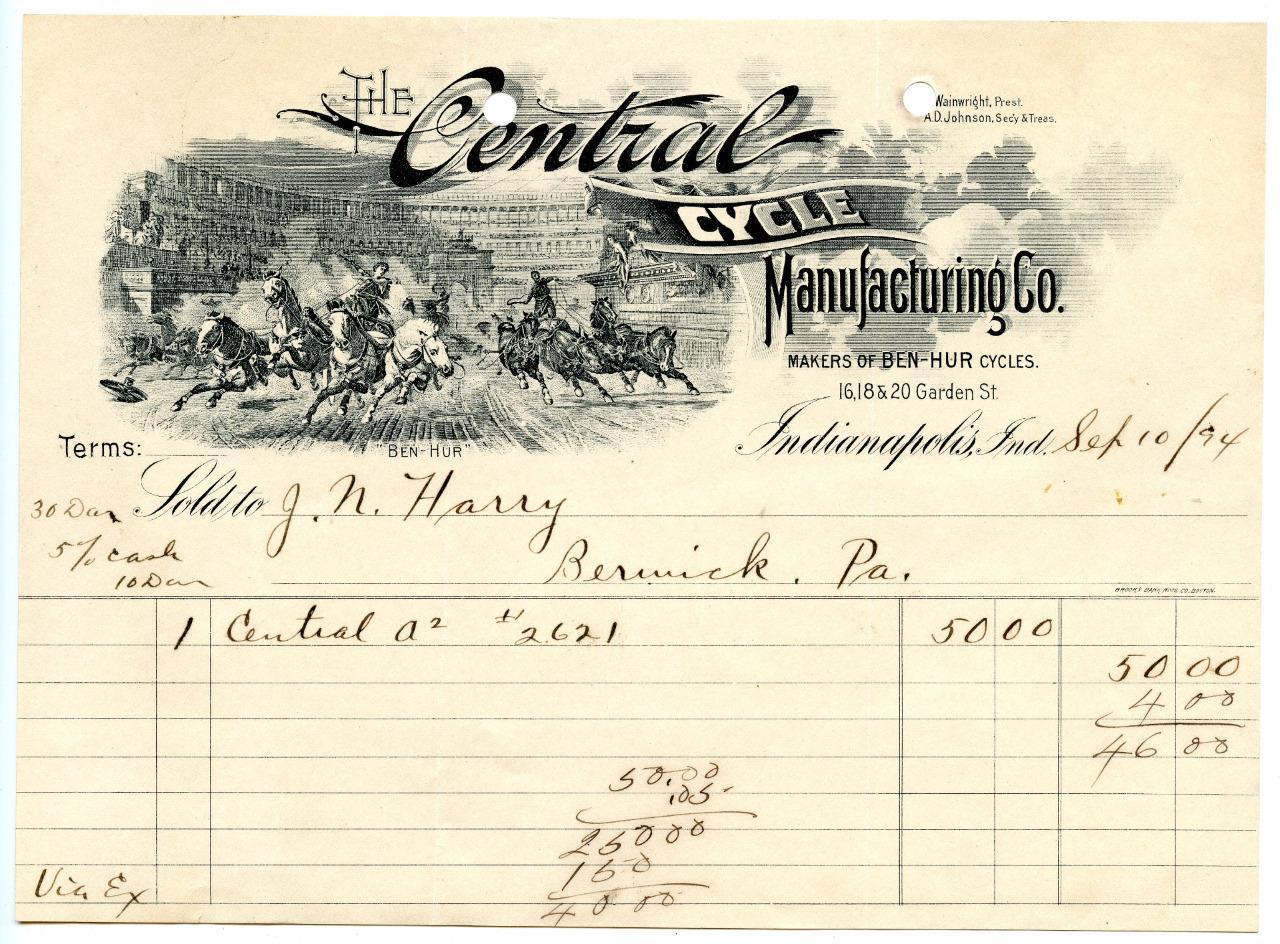 THE Central
CYCLE
Manufacturing Co.
Wainwright, Prest.
A.D. Johnson, Sec'y & Treas.
MAKERS OF BEN-HUR CYCLES.
16, 18 & 20 Garden St.
"BEN-HUR"
Indianapolis, Ind. Sep 10/94
Terms:
30 Das
5% cash
10 Das
Sold to J. N. Harry
Berwick, Pa.
BROOKS BANK NOTE CO. BOSTON.
1 Central a² #2621 50 00
50 00
4 00
46 00
50.00
.05
25000
150
4000
Via Ex